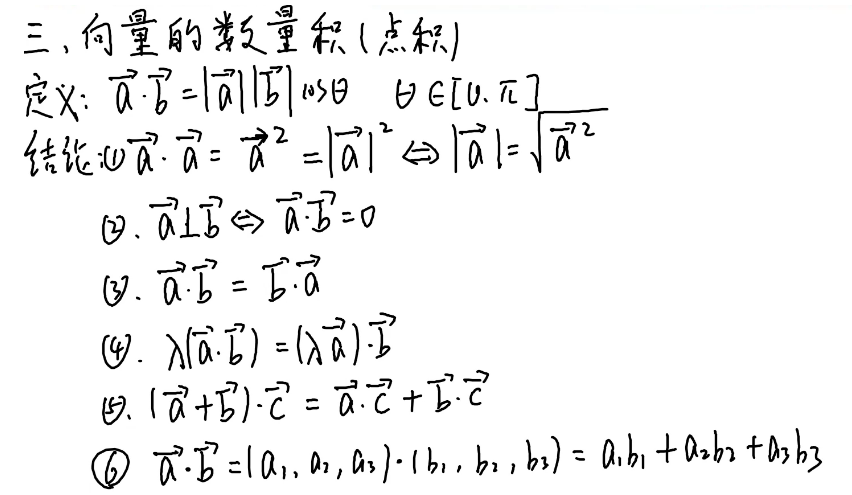 三、向量的数量积(点积)
定义: $\vec{a}\cdot\vec{b}=|\vec{a}||\vec{b}|\cos\theta$  $\theta\in[0.\pi]$
结论:① $\vec{a}\cdot\vec{a}=\vec{a}^2=|\vec{a}|^2\Leftrightarrow|\vec{a}|=\sqrt{\vec{a}^2}$
②. $\vec{a}\perp\vec{b}\Leftrightarrow\vec{a}\cdot\vec{b}=0$
③. $\vec{a}\cdot\vec{b}=\vec{b}\cdot\vec{a}$
④. $\lambda(\vec{a}\cdot\vec{b})=(\lambda\vec{a})\cdot\vec{b}$
⑤. $(\vec{a}+\vec{b})\cdot\vec{c}=\vec{a}\cdot\vec{c}+\vec{b}\cdot\vec{c}$
⑥ $\vec{a}\cdot\vec{b}=(a_1,a_2,a_3)\cdot(b_1,b_2,b_3)=a_1b_1+a_2b_2+a_3b_3$